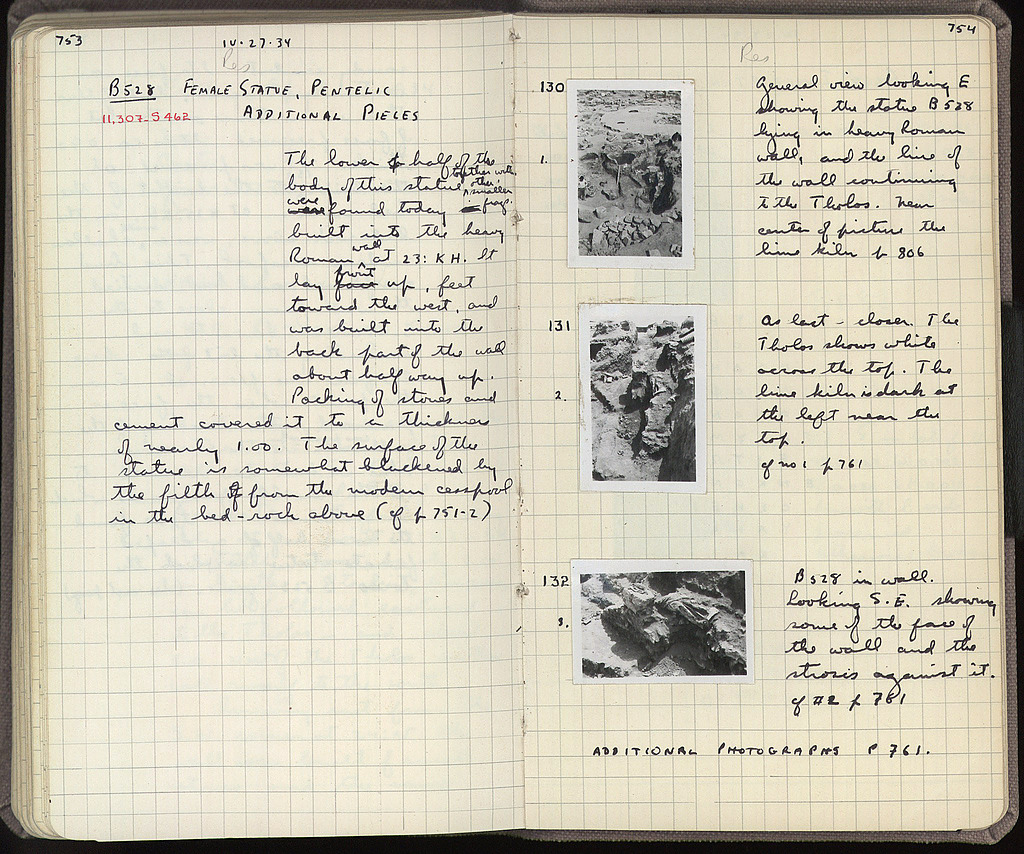 753
IV·27·34
Res
B528 FEMALE STATUE, PENTELIC
11,307-S 462 ADDITIONAL PIECES
The lower half of the
body of this statue together with
other smaller
were found today frags.
built into the heavy
Roman wall at 23:KH. It
lay face front up, feet
toward the west, and
was built into the
back part of the wall
about half way up.
Packing of stones and
cement covered it to a thickness
of nearly 1.00. The surface of the
statue is somewhat blackened by
the filth from the modern cesspool
in the bed-rock above (cf p 751-2)
754
Res
130
1.
General view looking E
showing the statue B528
lying in heavy Roman
wall, and the line of
the wall continuing
to the Tholos. Near
center of picture the
lime kiln p 806
131
2.
As last - closer. The
Tholos shows white
across the top. The
lime kiln is dark at
the left near the
top.
cf no 1 p 761
132
3.
B528 in wall.
Looking S.E. showing
some of the face of
the wall and the
strosis against it.
cf #2 p 761
ADDITIONAL PHOTOGRAPHS P 761.